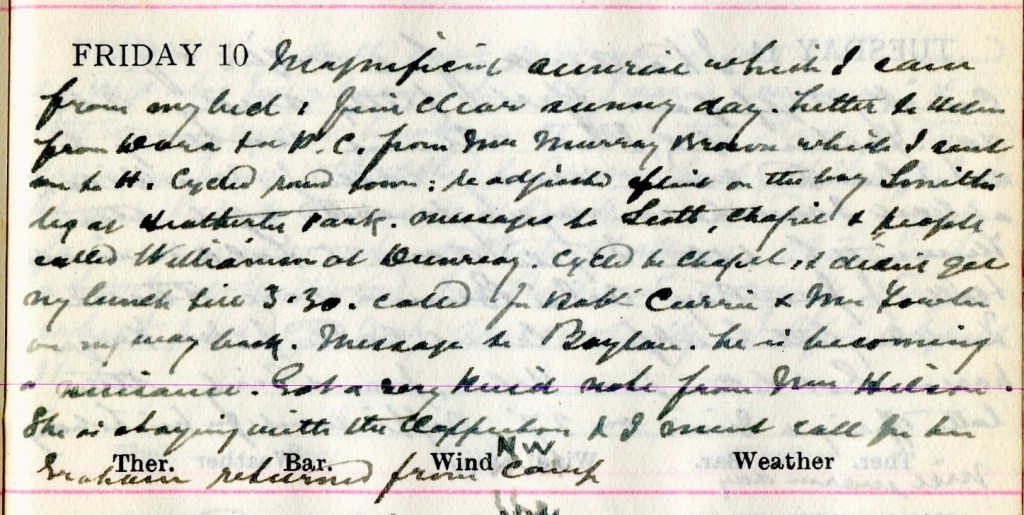 FRIDAY 10 Magnificent sunrise which I saw
from my bed & fine clear sunny day. Letter to Helen
from Dora & a P.C. from Mrs Murray Brown which I sent
on to H. Cycled round town: readjusted splint on the boy Smith's
leg at Park. Messages to Scott, Chapel & people
called Williamson at Dunreay. Cycled to Chapel, & didn't get
my lunch till 3.30. Called for Robt Currie & Mrs Fowler
on my way back. Message to Boylan. he is becoming
a nuisance. Got a very kind note from Mrs Hilson.
She is staying with the & I must call for her
Ther. Bar. Wind NW Weather
Graham returned from Camp